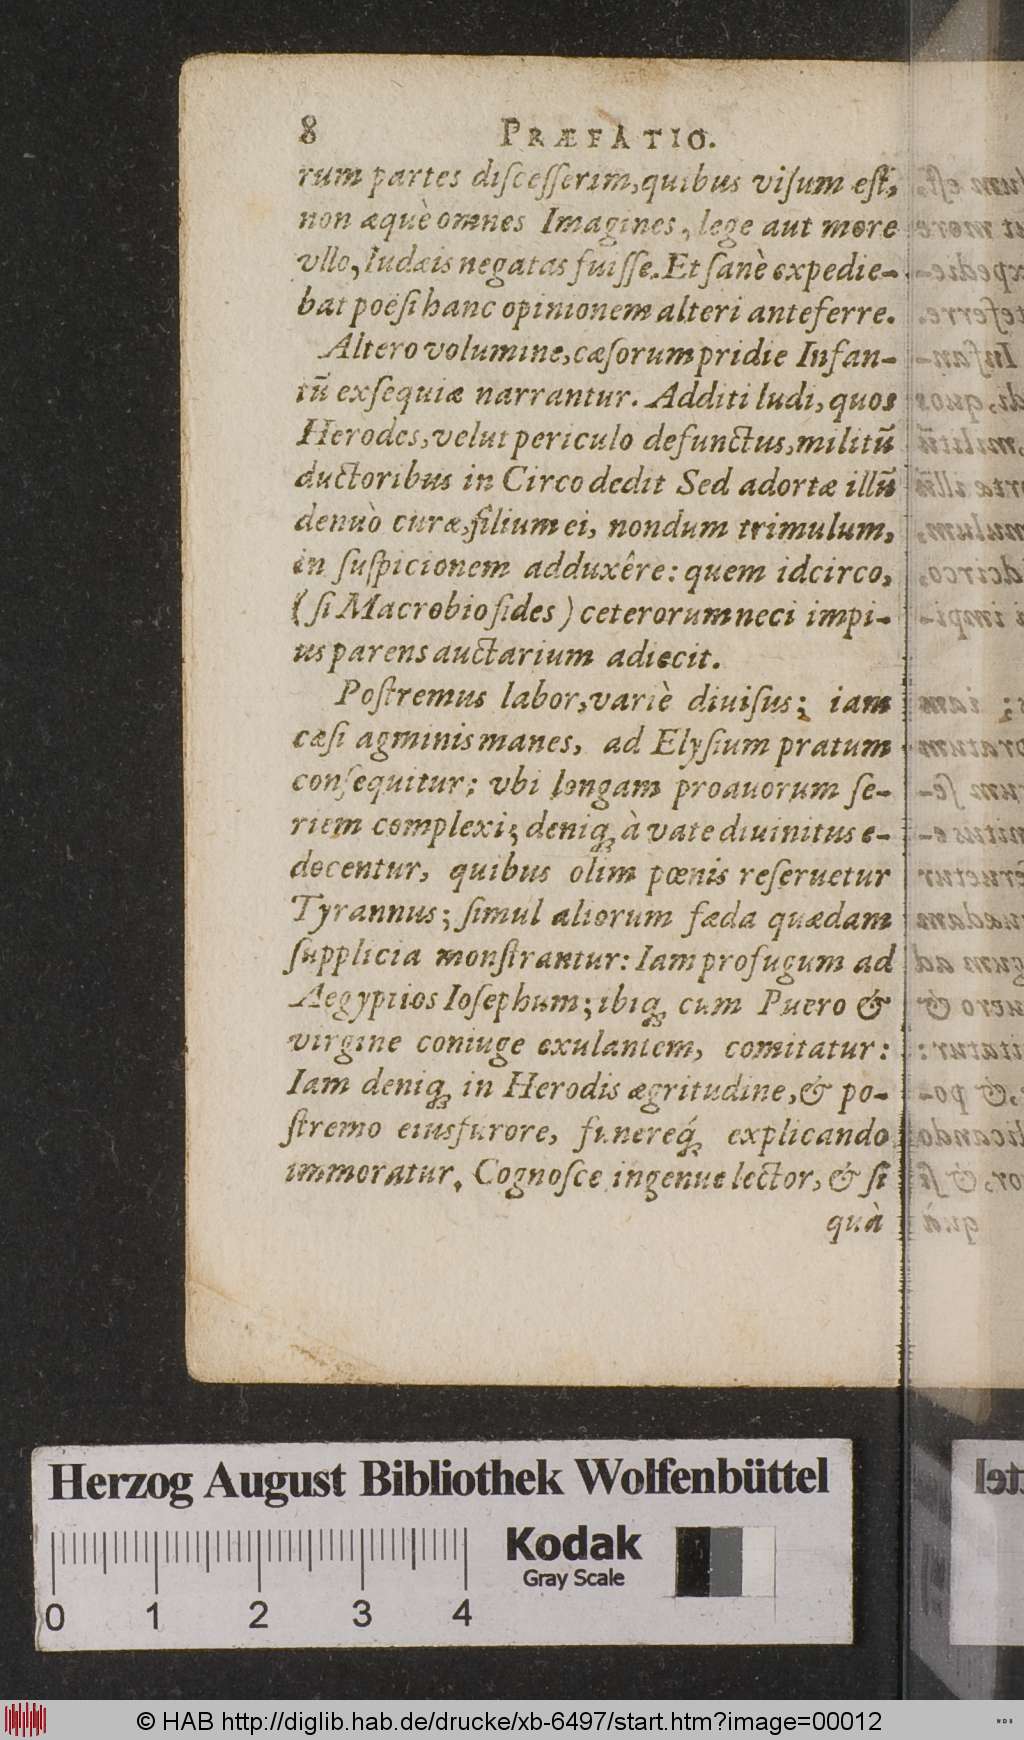 8 PRÆFATIO.
rum partes discesserim, quibus visum est,
non æquè omnes Imagines, lege aut more
vllo, Iudæis negatas fuisse. Et sanè expedie-
bat poësi hanc opinionem alteri anteferre.
Altero volumine, cæsorum pridie Infan-
tū exsequiæ narrantur. Additi ludi, quos
Herodes, velut periculo defunctus, militū
ductoribus in Circo dedit Sed adortæ illū
denuò curæ, filium ei, nondum trimulum,
in suspicionem adduxêre: quem idcirco,
(si Macrobio fides) ceterorum neci impi-
us parens auctarium adiecit.
Postremus labor, variè diuisus; iam
cæsi agminis manes, ad Elysium pratum
consequitur; vbi longam proauorum se-
riem complexi; deniq; à vate diuinitus e-
docentur, quibus olim pœnis reseruetur
Tyrannus; simul aliorum fæda quædam
supplicia monstrantur: Iam profugum ad
Aegyptios Iosephum; ibiq; cum Puero &
virgine coniuge exulantem, comitatur:
Iam deniq; in Herodis ægritudine, & po-
stremo eius furore, funereq́; explicando
immoratur. Cognosce ingenue lector, & si
quà
Herzog August Bibliothek Wolfenbüttel
Kodak
Gray Scale
0 1 2 3 4
© HAB http://diglib.hab.de/drucke/xb-6497/start.htm?image=00012